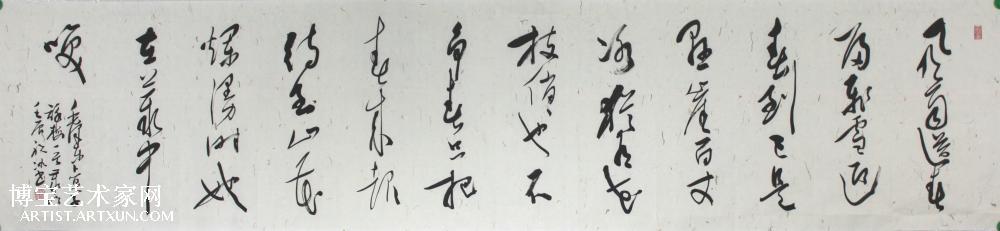 风雨送春
归飞雪迎
春到已是
悬崖百丈
冰犹有花
枝俏也不
争春只把
春来报
待到山花
烂漫时她
在丛中
咲
毛泽东
咏梅一首
壬辰
博宝艺术家网
ARTIST.ARTXUN.COM